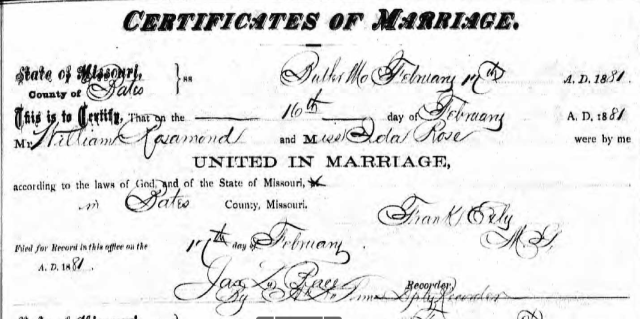 CERTIFICATES OF MARRIAGE.
State of Missouri,
County of Bates } ss Butler Mo February 17th A. D. 1881
This is to Certify, That on the 16th day of February A. D. 1881
Mr William Rosamond and Miss Ida Rose were by me
UNITED IN MARRIAGE,
according to the laws of God, and of the State of Missouri,
in Bates County, Missouri.
Frank
M. G.
Filed for Record in this office on the 17th day of February
A. D. 1881.
Jas L. Pace Recorder,
By Depty Recorder